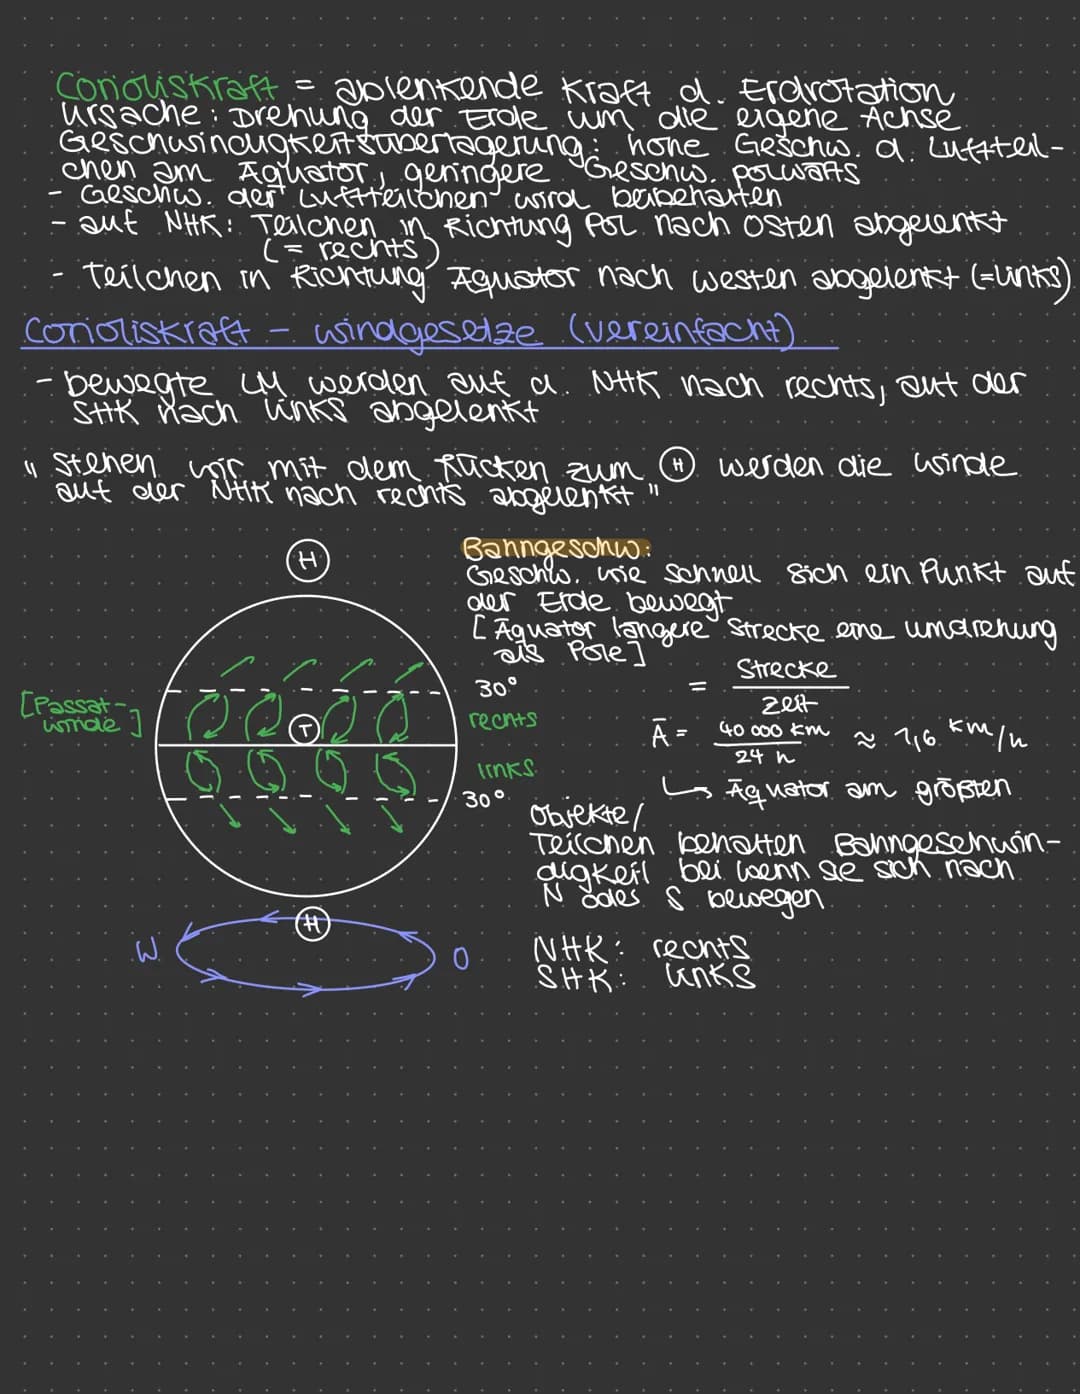 Corioliskraft = ablenkende Kraft d. Erdrotation
Ursache: Drehung der Erde um die eigene Achse
Geschwindigkeitsüberlagerung: hohe Geschw. d. Luftteil-
chen am Äquator, geringere Geschw. polwärts
- Geschw. der Luftteilchen wird beibehalten
- auf NHK: Teilchen in Richtung Pol nach Osten abgelenkt
(= rechts)
- Teilchen in Richtung Äquator nach westen abgelenkt (=links)
Corioliskraft - windgesetze (vereinfacht)
- bewegte LM werden auf d. NHK nach rechts, auf der
SHK nach links abgelenkt
"Stehen wir mit dem Rücken zum H werden die winde
auf der NHK nach rechts abgelenkt"
H
Bahngeschw:
Geschw. wie schnell sich ein Punkt auf
der Erde bewegt
[Äquator längere Strecke eine umdrehung
als Pole]
= Strecke
zeit
30°
[Passat-
winde]
T
rechts
Ä = 40 000 km ≈ 1,6 km/h
24 h
links
↳ Äquator am größten
30°
Objekte/
Teilchen behalten Bahngeschwin-
digkeit bei wenn sie sich nach
N oder S bewegen
H
W
O
NHK: rechts
SHK: links